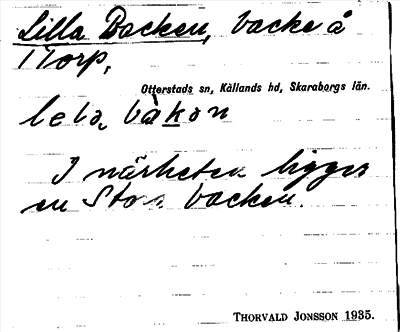 Lilla Backen, backe å
1 Torp,
Otterstads sn, Kållands hd, Skaraborgs län.
lela bàkan
I närheten ligger
en Stora backen.
THORVALD JONSSON 1935.